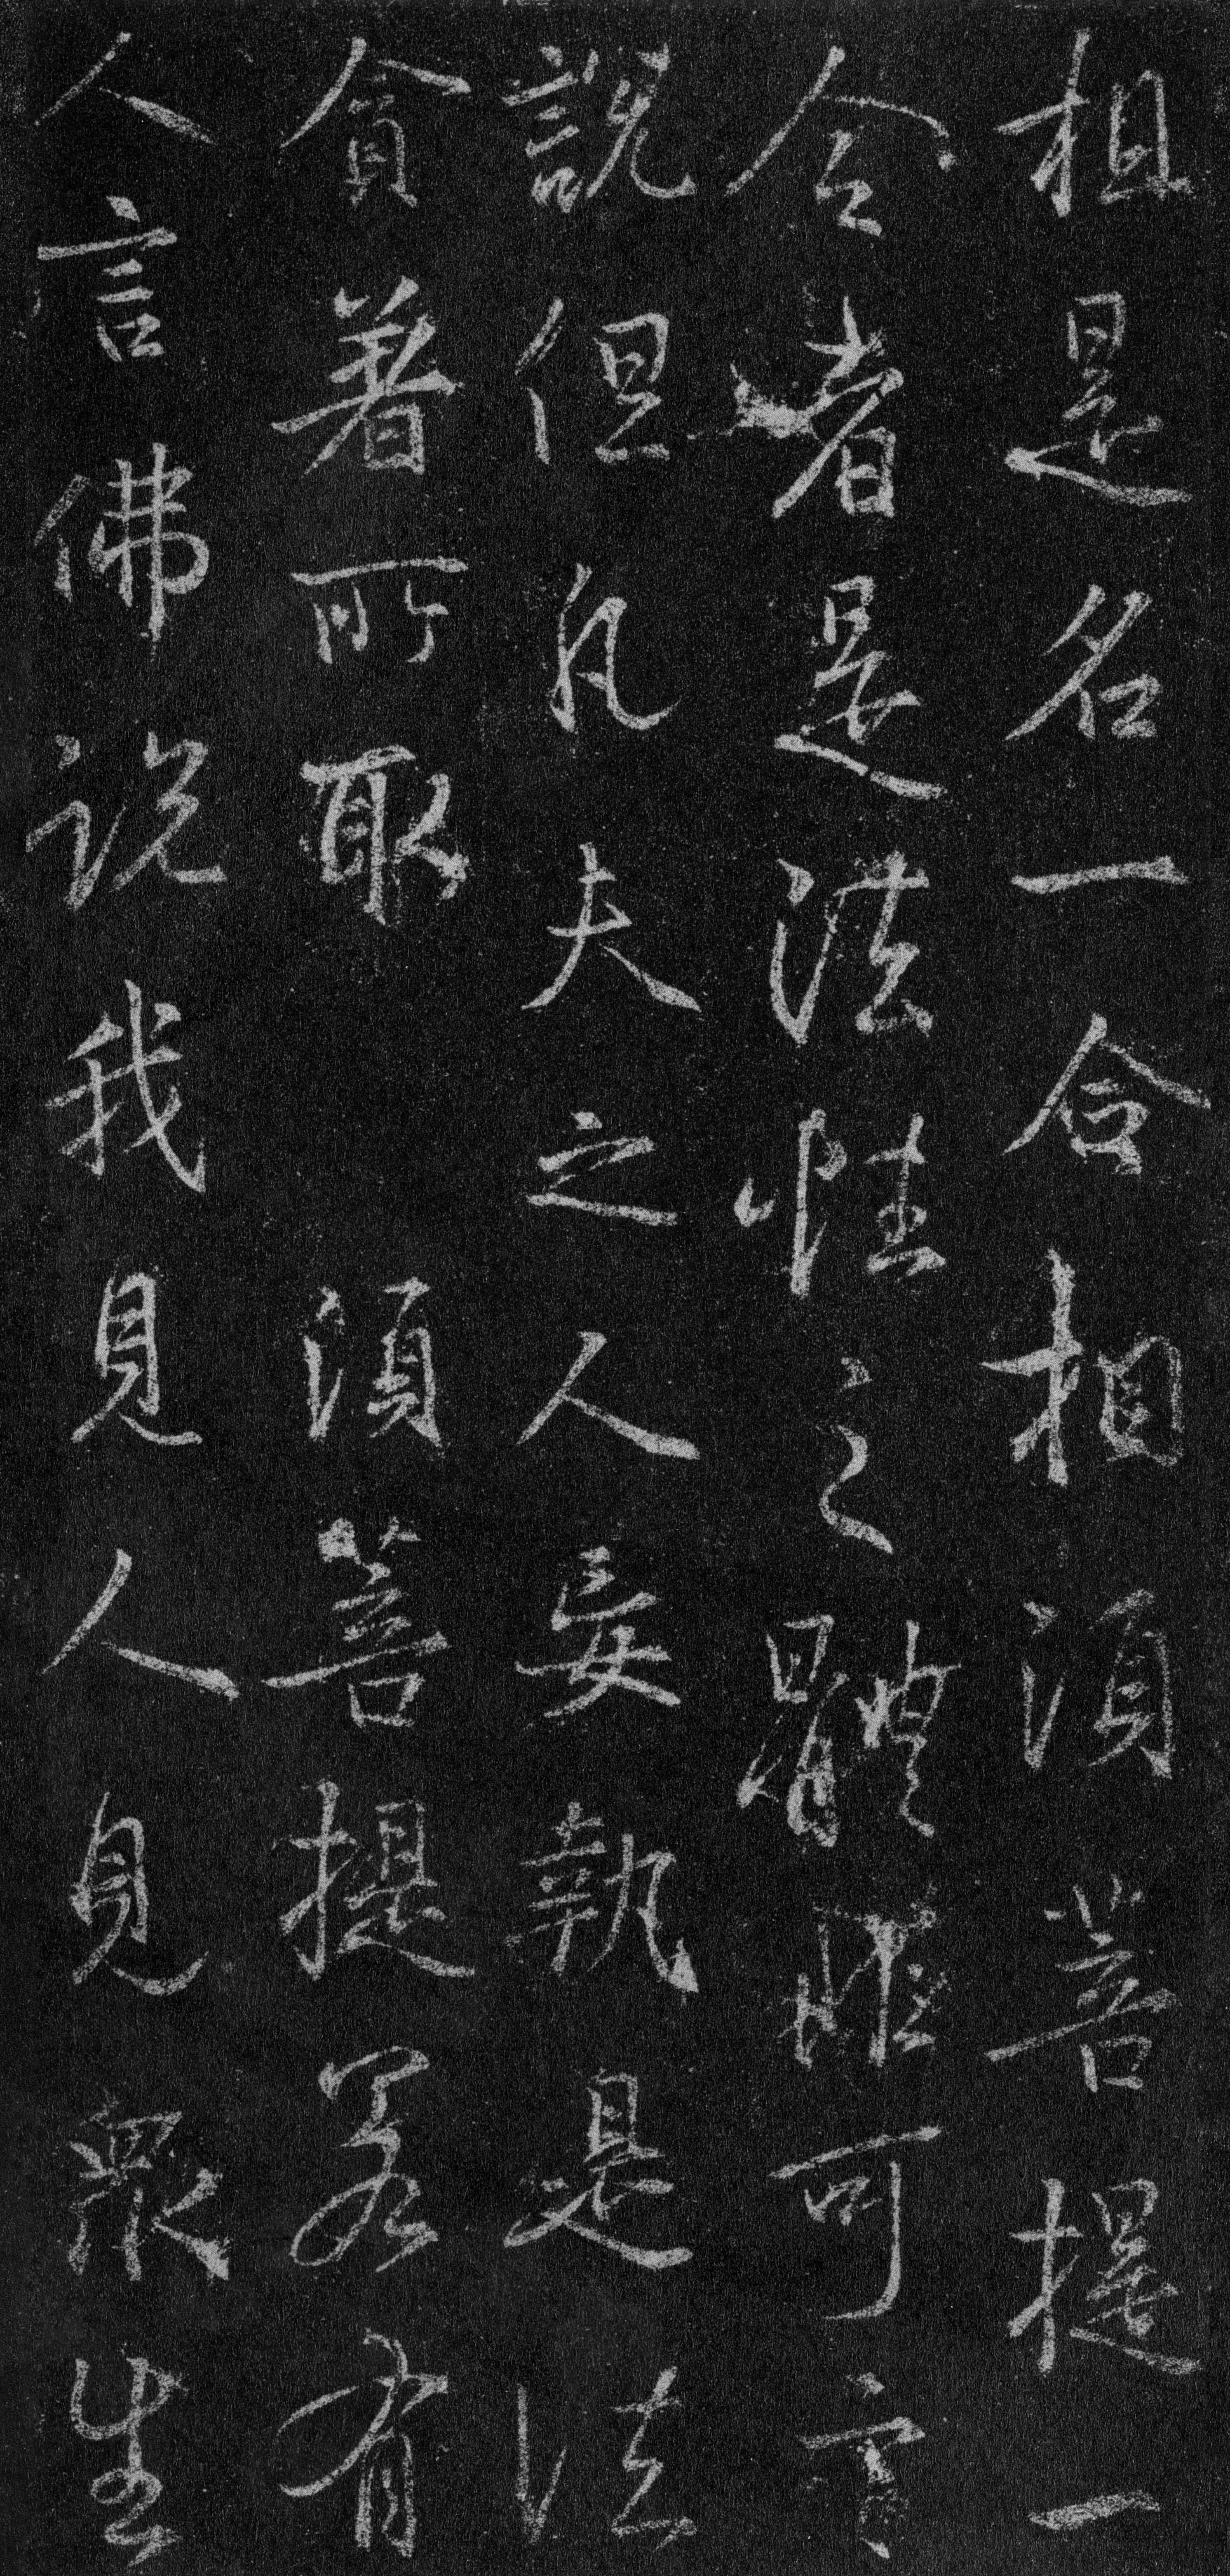 相是名一合相須菩提一
合者是法性之體惟可言
說但凡夫之人妄執是法
貪著所取　須菩提若有
人言佛说我見人見眾生